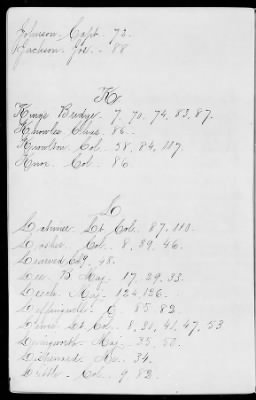 Johnson, Capt. 73.
Jackson Jos. 88
K
Kings Bridge. 7, 70. 74, 83, 87.
Knowles Chas. 86.
Knowlton Col. 58, 84, 117.
Knox. Col. 86
L
Latimer Lt Col. 87, 110.
Lasher. Col. 8, 39, 46.
48.
Lee. Maj. 17, 29, 33.
Leech. Maj. 124, 126.
G. 85, 82.
Lewis Lt Col. 8, 21, 41, 47, 53
Livingworth Maj. 35, 50.
34.
Little. Col. 9 82.